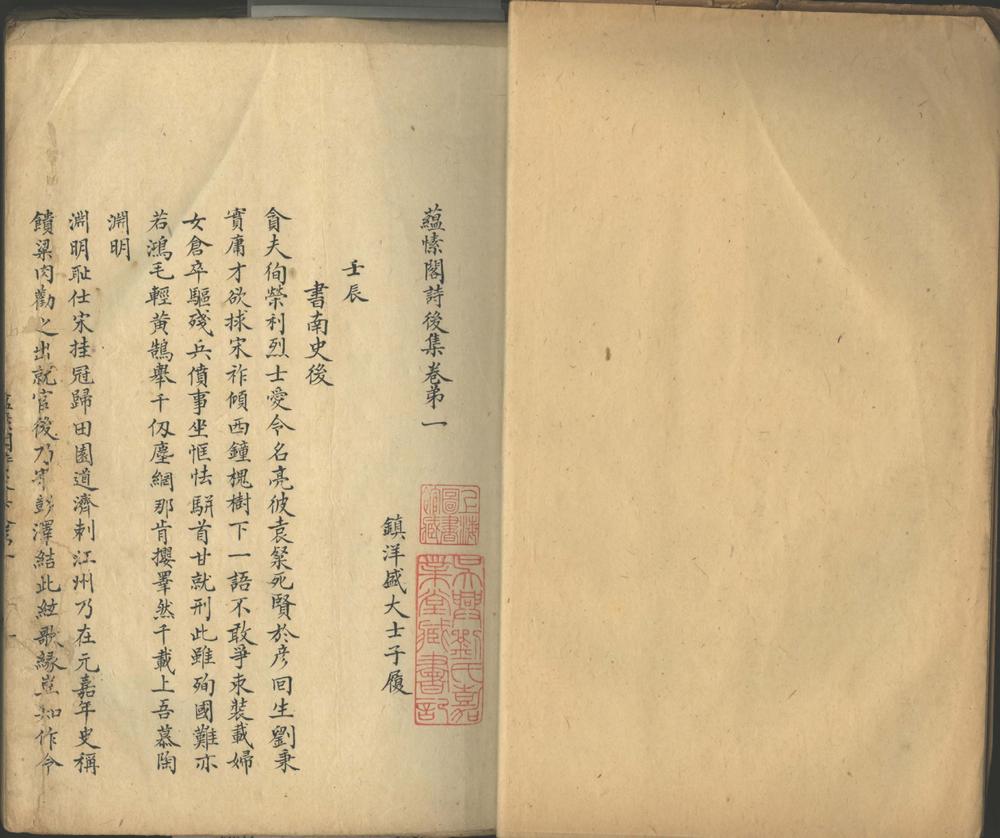 蘊愫閣詩後集卷弟一
鎮洋盛大士子履
壬辰
書南史後
貪夫徇榮利烈士愛令名亮彼袁粲死賢於彦回生劉秉
實庸才欲捄宋祚傾西鐘槐樹下一語不敢爭束裝載婦
女倉卒驅殘兵僨事坐恇怯駢首甘就刑此雖殉國難亦
若鴻毛輕黄鵠舉千仭塵網那肯攖羣然千載上吾慕陶
淵明
淵明耻仕宋挂冠歸田園道濟刺江州乃在元嘉年史稱
饋粱肉勸之出就官後乃宰彭澤結此絃歌緣豈知作令
上海圖書館藏
吳興劉氏嘉業堂藏書記